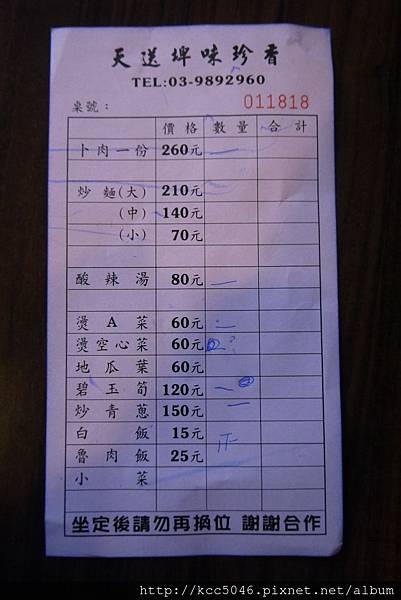 天送埤味珍香
TEL:03-9892960
桌號：
011818
價格 數量 合計
卜肉一份 260元 一
炒麵(大) 210元
(中) 140元
(小) 70元
酸辣湯 80元 一
燙A菜 60元
燙空心菜 60元
地瓜葉 60元
碧玉筍 120元 一
炒青蔥 150元 一
白飯 15元
魯肉飯 25元
小菜
坐定後請勿再換位 謝謝合作
http://kcc5046.pixnet.net/album